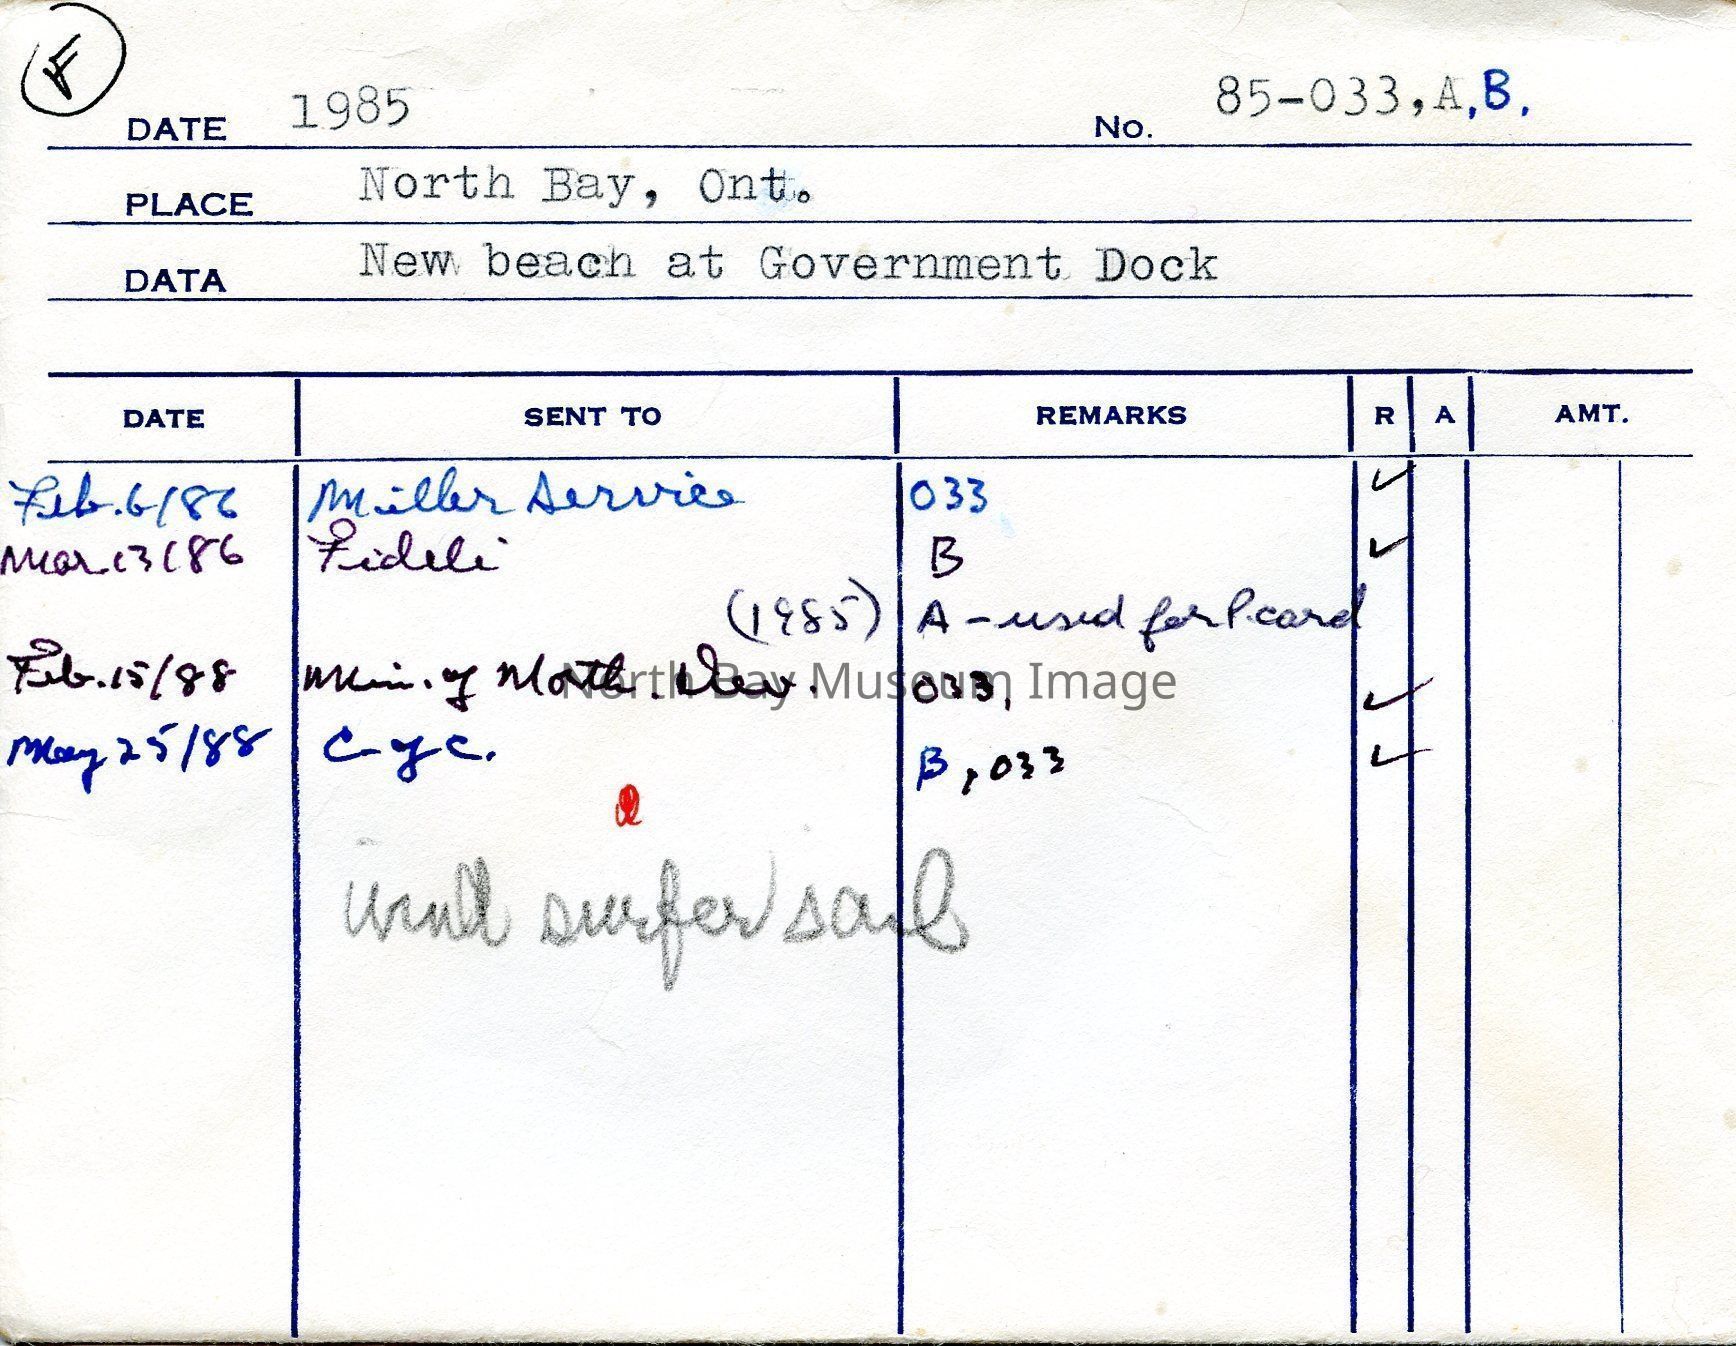 F
DATE 1985 No. 85-033,A,B.
PLACE North Bay, Ont.
DATA New beach at Government Dock
DATE SENT TO REMARKS R A AMT.
Feb. 6/86 Miller Service 033 ✓
Mar 13/86 Fideli B ✓
(1985) A - used for P. card
Feb. 15/88 Min. of North. Dev. 033, ✓
May 25/88 C of C. B, 033 ✓
wind surfer sail
North Bay Museum Image